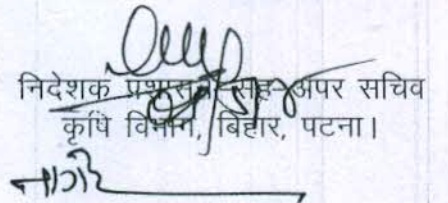 निदेशक प्रशासन-सह-अपर सचिव
कृषि विभाग, बिहार, पटना।